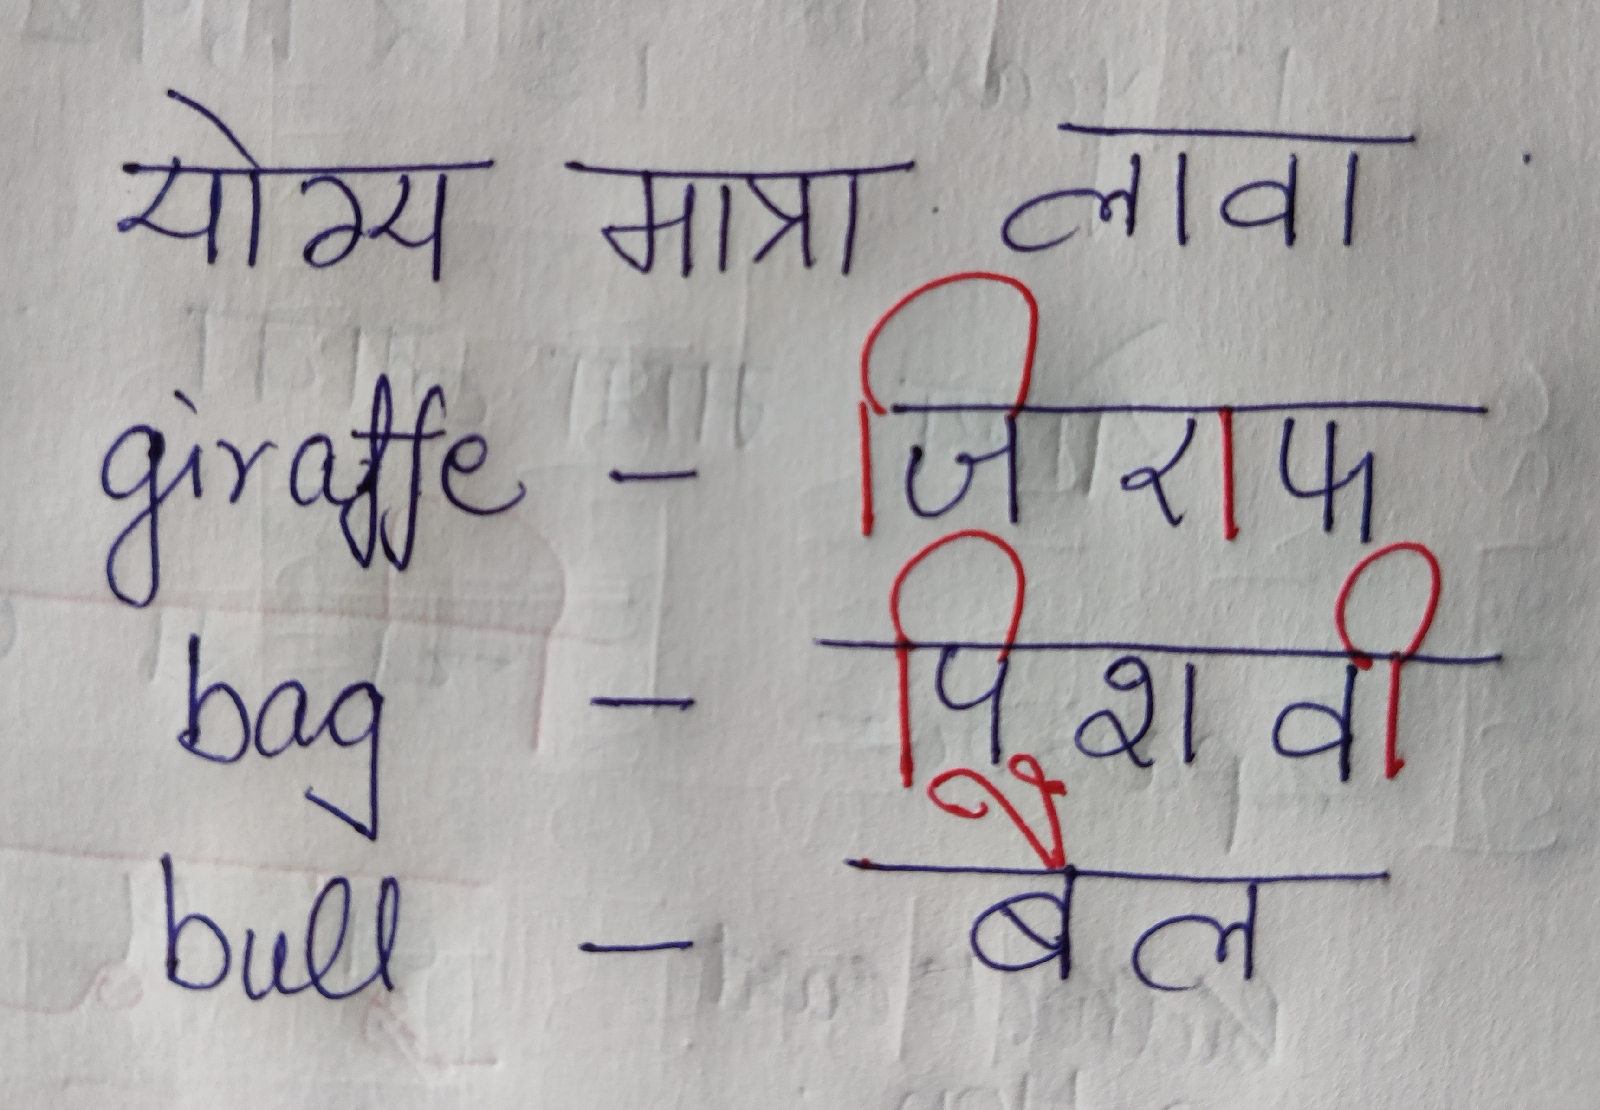 योग्य मात्रा लावा
giraffe - जिराफ
bag - पिशवी
bull - बैल